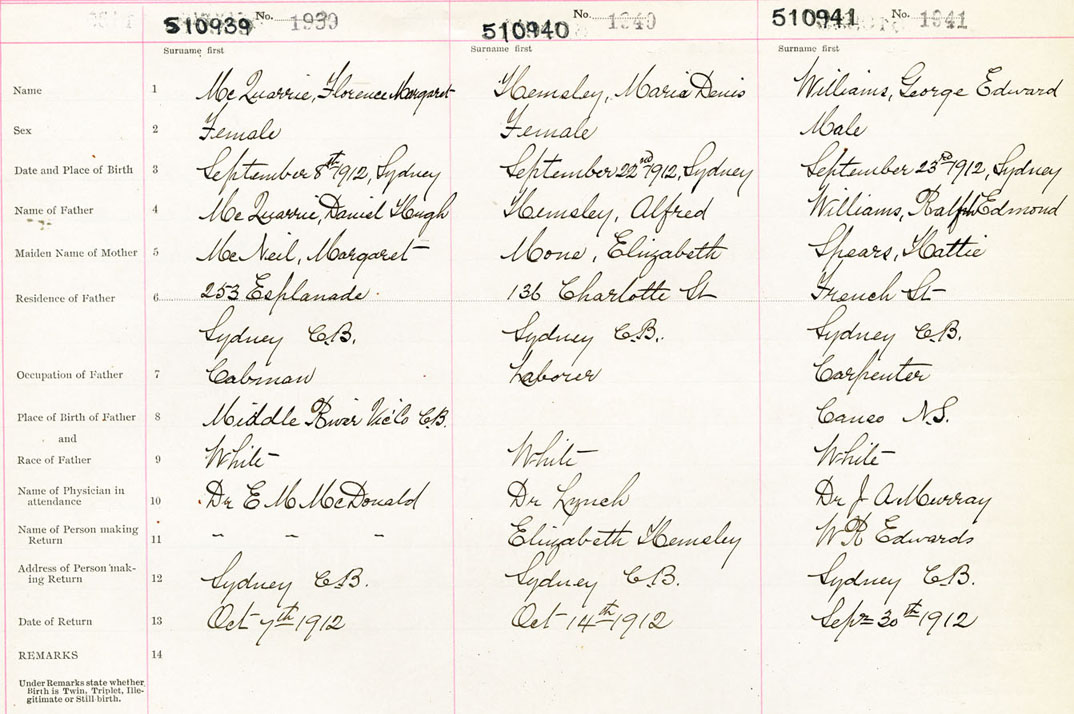 510939 No. 1939 510940 No. 1940 510941 No. 1941
Surname first Surname first Surname first
Name 1 McQuarrie, Florence Margaret Hemsley, Maria Denis Williams, George Edward
Sex 2 Female Female Male
Date and Place of Birth 3 September 8th 1912, Sydney September 22nd 1912, Sydney September 23rd 1912, Sydney
Name of Father 4 McQuarrie, Daniel Hugh Hemsley, Alfred Williams, Ralph Edmond
Maiden Name of Mother 5 McNeil, Margaret Mone, Elizabeth Spears, Hattie
Residence of Father 6 253 Esplanade 136 Charlotte St French St
Sydney C.B. Sydney C.B. Sydney C.B.
Occupation of Father 7 Cabman Laborer Carpenter
Place of Birth of Father 8 Middle River Vic Co C.B. Canso N.S.
and
Race of Father 9 White White White
Name of Physician in
attendance 10 Dr E M McDonald Dr Lynch Dr J A Murray
Name of Person making
Return 11 " " " Elizabeth Hemsley W R Edwards
Address of Person mak-
ing Return 12 Sydney C.B. Sydney C.B. Sydney C.B.
Date of Return 13 Oct 7th 1912 Oct 14th 1912 Sept 30th 1912
REMARKS 14
Under Remarks state whether
Birth is Twin, Triplet, Ille-
gitimate or Still-birth.